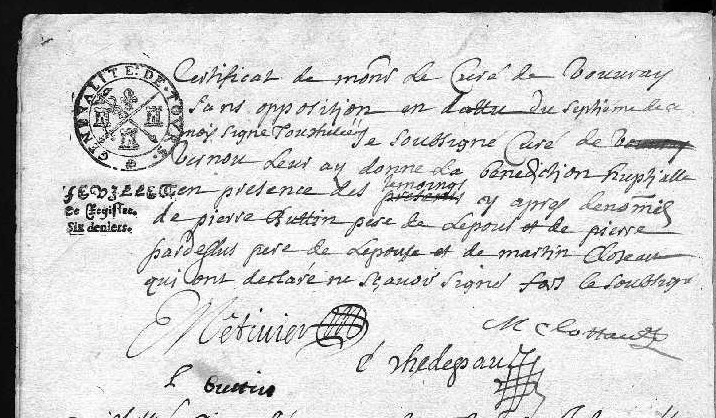 GENERALITE · DE · TOVRS
FEVILLE
De Registre.
Six deniers.
Certificat de mons le Curé de Vouvray
sans opposition en datte du septieme de ce
mois signé je soubsigné Curé de Vouvray
Vernou leur ay donné la benediction nuptialle
en presence des temoings presents cy apres denommés
de pierre Buttin pere de lepous et de pierre
pardessus pere de lepouse et de martin Closeau
qui ont declaré ne sçavoir signer fors le soubsigné
Métivier
M Clottau
P Buttin